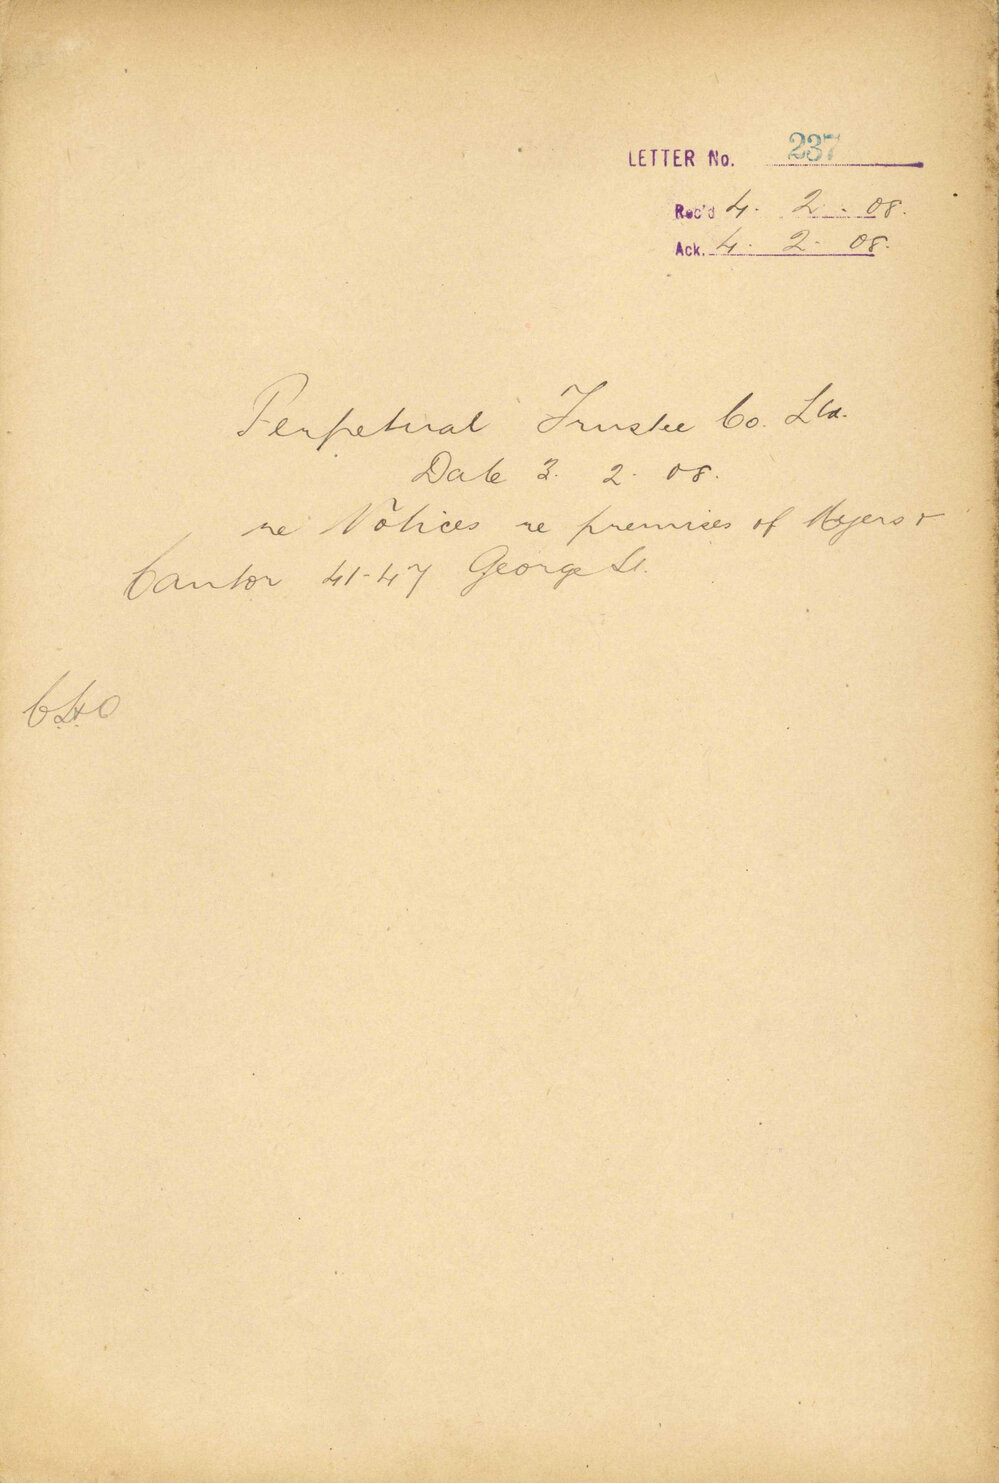 LETTER No. 237
Rec'd 4. 2. 08.
Ack. 4. 2. 08.
Perpetual Trustee Co. Ltd.
Date 3. 2. 08.
re Notices re premises of Myers &
Cantor 41-47 George St.
C.H.O